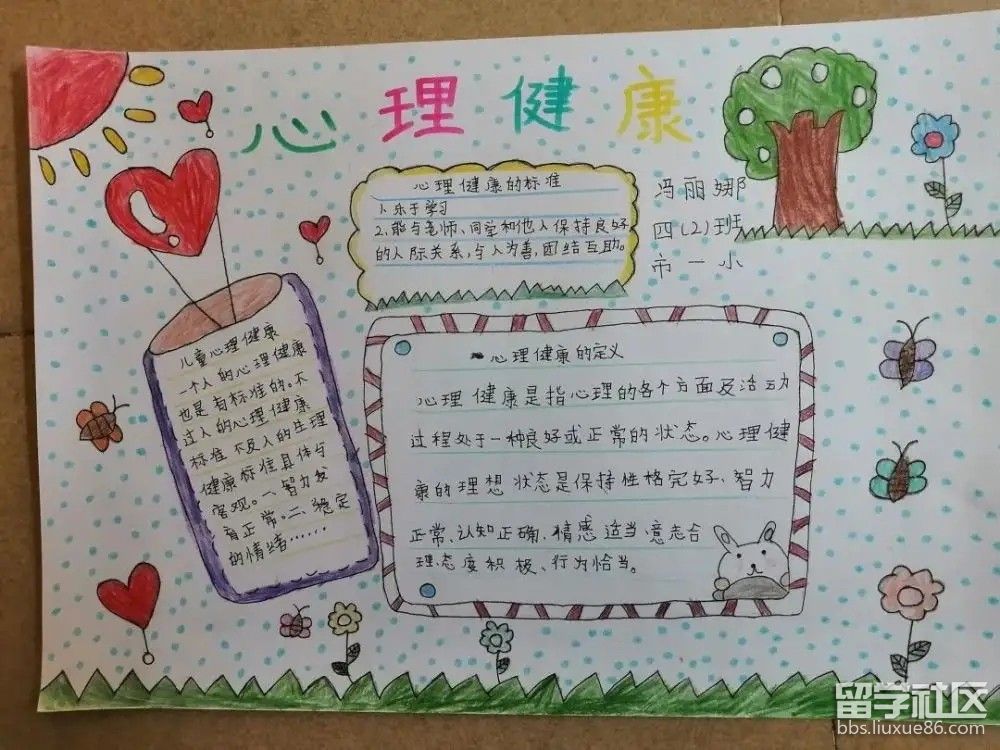 心理健康
心理健康的标准
1.乐于学习
2.能与老师、同学和他人保持良好
的人际关系,与人为善,团结互助。
冯丽娜
四(2)班
市一小
儿童心理健康
一个人的心理健康
也是有标准的。不
过人的心理健康
标准不及人的生理
健康标准具体与
客观。一、智力发
育正常。二、稳定
的情绪……
心理健康的定义
心理健康是指心理的各个方面及活动
过程处于一种良好或正常的状态。心理健
康的理想状态是保持性格完好、智力
正常、认知正确、情感适当、意志合
理、态度积极、行为恰当。
留学社区
bbs.liuxue86.com